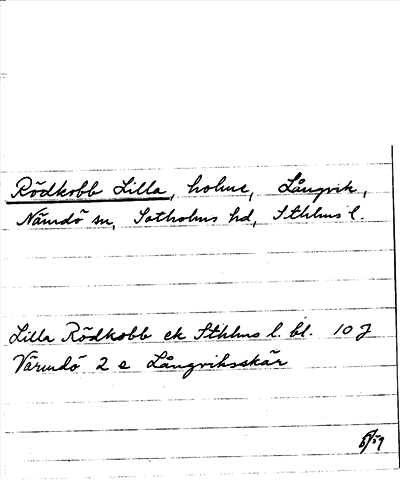 Rödkobb Lilla, holme, Långvik,
Nämdö sn, Sotholms hd, Sthlms l.
Lilla Rödkobb ek Sthlms l. bl. 10 J
Värmdö 2 e Långviksskär
/59